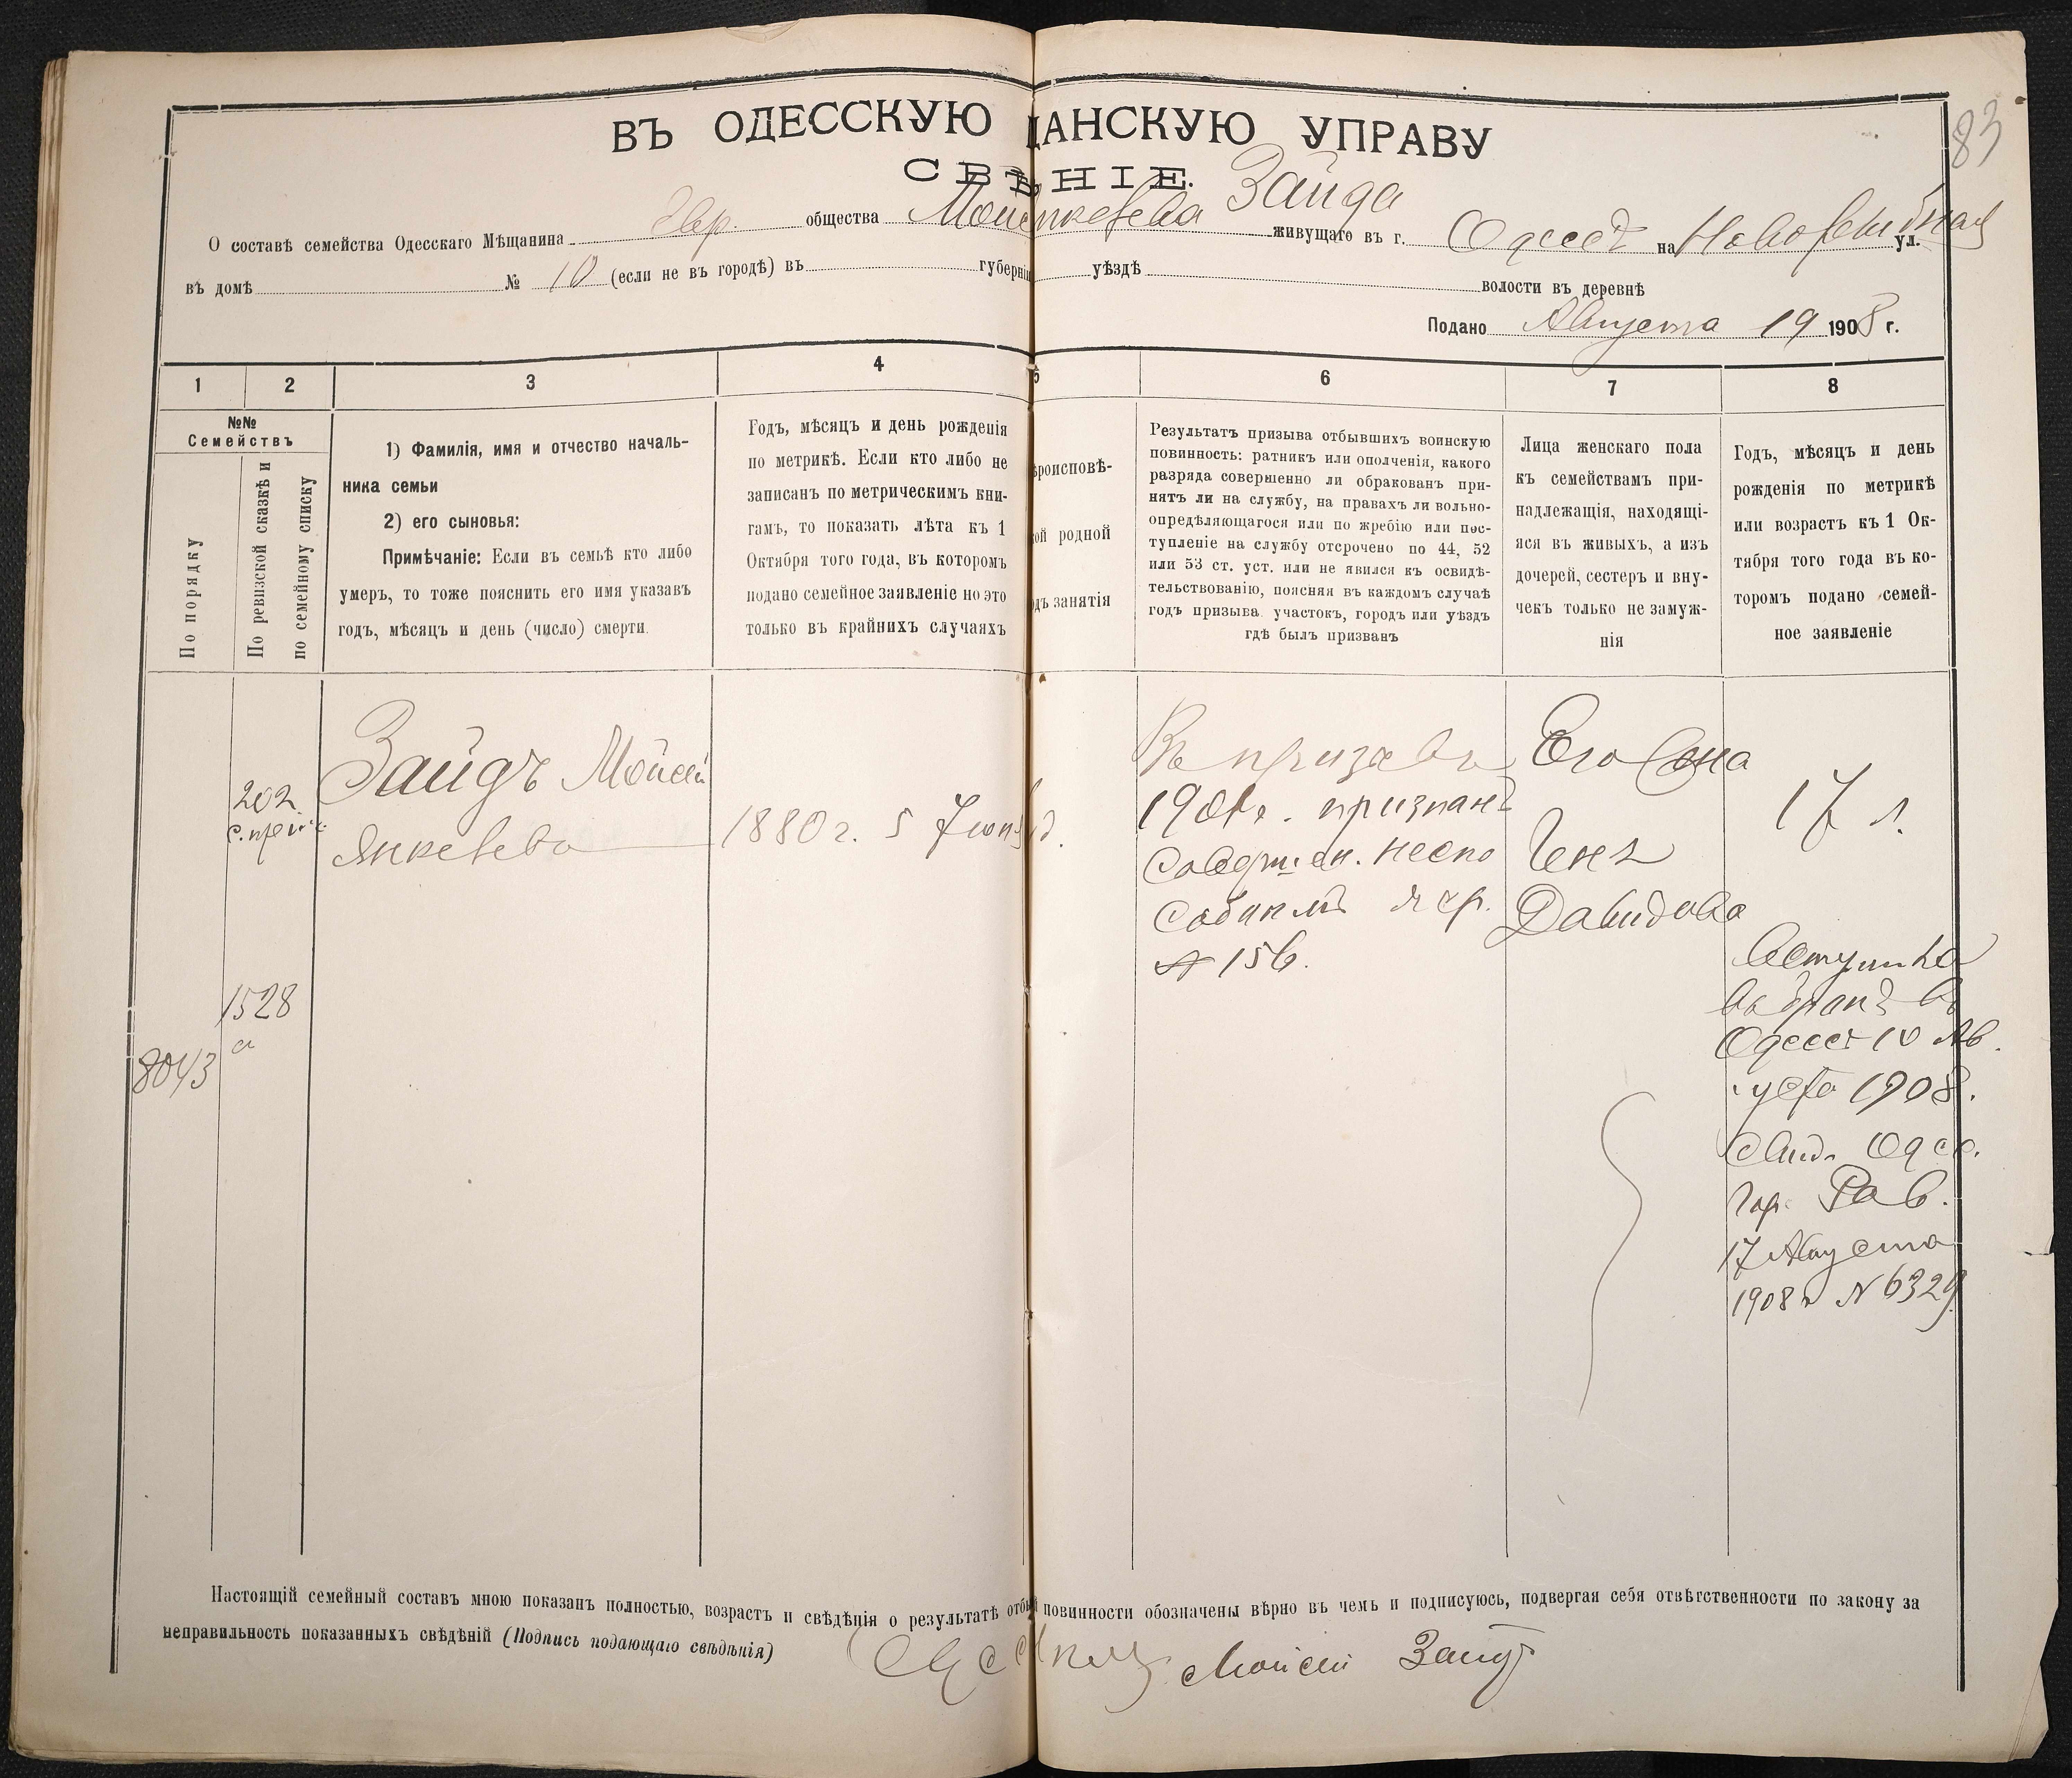 83
ВЪ ОДЕССКУЮ ЩАНСКУЮ УПРАВУ
СВѢНІЕ.
О составѣ семейства Одесскаго Мѣщанина Евр. общества Зайда живущаго въ г. Одессѣ на ул.
въ домѣ № 10 (если не въ городѣ) въ губерніи уѣздѣ волости въ деревнѣ
Подано Августа 19 1908 г.
1 2 3 4 5 6 7 8
№№
Семействъ
По порядку
По ревизской сказкѣ и
по семейному списку
1) Фамилія, имя и отчество началь-
ника семьи
2) его сыновья:
Примѣчаніе: Если въ семьѣ кто либо
умеръ, то тоже пояснить его имя указавъ
годъ, мѣсяцъ и день (число) смерти.
Годъ, мѣсяцъ и день рожденія
по метрикѣ. Если кто либо не
записанъ по метрическимъ кни-
гамъ, то показать лѣта къ 1
Октября того года, въ которомъ
подано семейное заявленіе но это
только въ крайнихъ случаяхъ
ѣроисповѣ-
ой родной
дъ занятія
Результатъ призыва отбывшихъ воинскую
повинность: ратникъ или ополченія, какого
разряда совершенно ли обракованъ при-
нятъ ли на службу, на правахъ ли вольно-
опредѣляющагося или по жребію или пос-
тупленіе на службу отсрочено по 44, 52
или 53 ст. уст. или не явился къ освидѣ-
тельствованію, поясняя въ каждомъ случаѣ
годъ призыва участокъ, городъ или уѣздъ
гдѣ былъ призванъ
Лица женскаго пола
къ семействамъ при-
надлежащія, находящі-
яся въ живыхъ, а изъ
дочерей, сестеръ и вну-
чекъ только не замуж-
нія
Годъ, мѣсяцъ и день
рожденія по метрикѣ
или возрастъ къ 1 Ок-
тября того года въ ко-
торомъ подано семей-
ное заявленіе
202
Зайдъ Мойсей
Янкелевъ
1880 г. 5
Въ призывъ
1901 г. признанъ
Совершен. неспо
собнымъ
№ 156.
Его жена
Геня
Давидова
17 л.
1528
а
8043
Вступилъ
въ бракъ въ
Одессѣ 10 Ав.
густа 1908.
Свид. Одес.
Гор. Рав.
17 Августа
1908 г N 6329
Настоящій семейный составъ мною показанъ полностью, возрастъ и свѣдѣнія о результатѣ отбы повинности обозначены вѣрно въ чемъ и подписуюсь, подвергая себя отвѣтственности по закону за
неправильность показанныхъ свѣдѣній (Подпись подающаго свѣдѣнія)
Мойсей Зайдъ